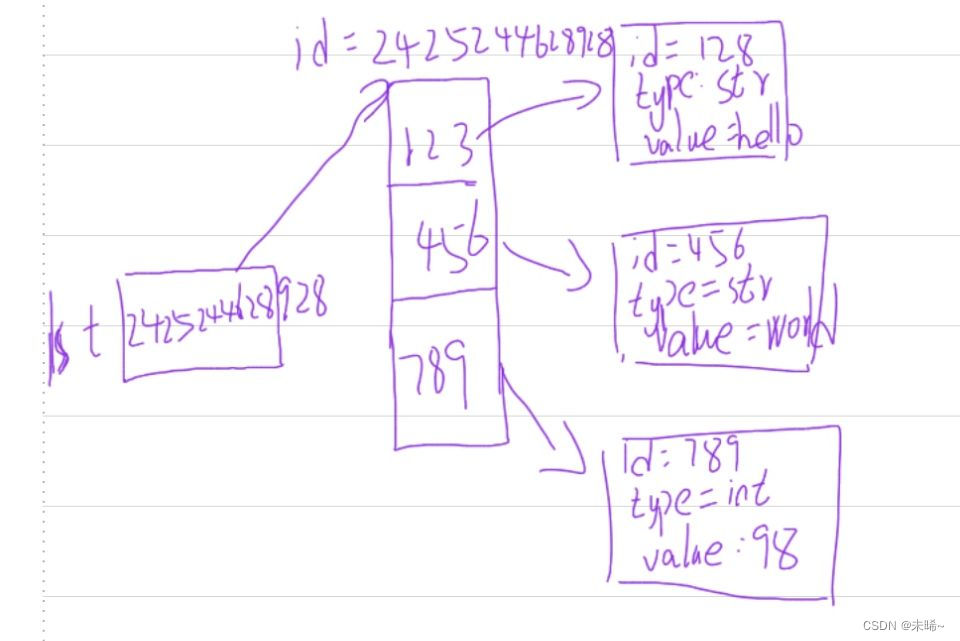 id = 2425244628928
id = 128
type: str
value = hello
123
456
id = 456
type = str
value = world
lst
2425244628928
789
id = 789
type = int
value : 98
CSDN @未晞~